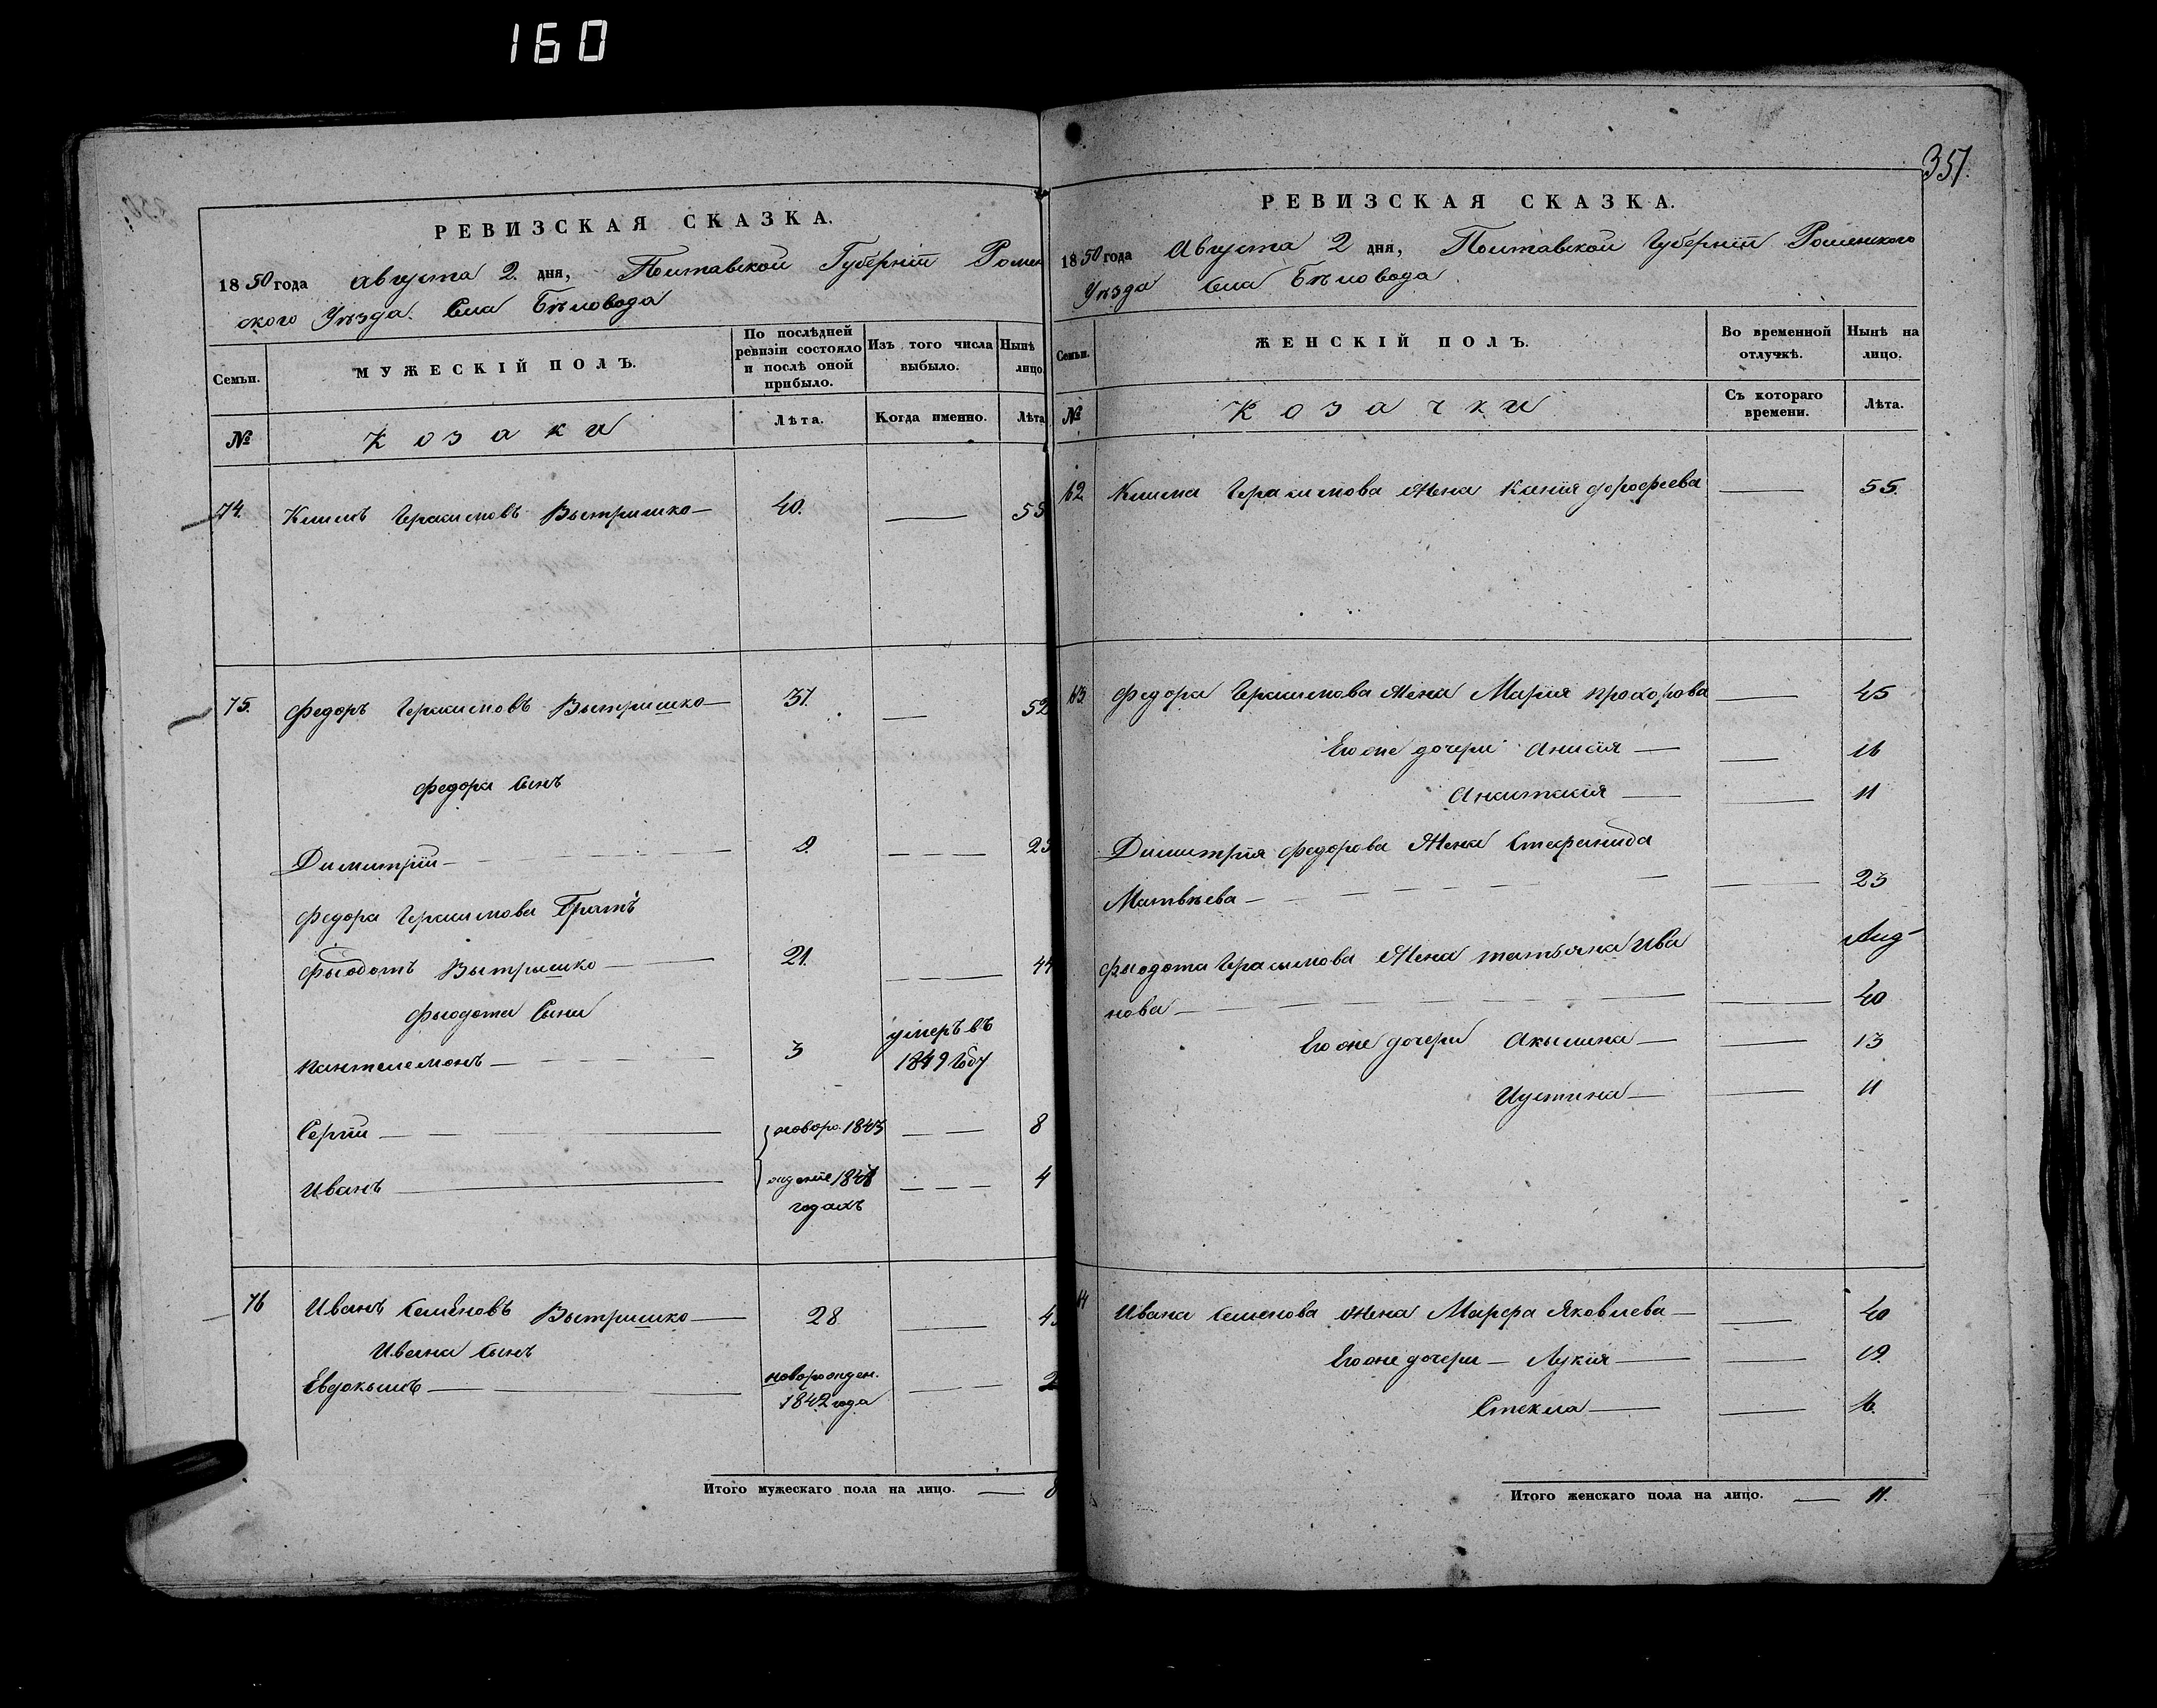 160
351.
РЕВИЗСКАЯ СКАЗКА.
1850 года Августа 2. дня, Полтавской Губерніи Ромен
ского Уѣзда. Села Бѣловода
Семьи.
МУЖЕСКІЙ ПОЛЪ.
По послѣдней ревизіи состояло и послѣ оной прибыло.
Изъ того числа выбыло.
Нынѣ лицо
№
Козаки
Лѣта.
Когда именно.
Лѣта
74. Климъ Герасимовъ Вытришко — 40. — 55
75. Федоръ Герасимовъ Вытришко — 37. — 52
Федора Сынъ
Димитрій — 9. — 25
Федора Герасимова Братъ
Фыодотъ Вытришко — 21. — 44
Фыодота Сыны
Пантелемонъ — 3 умеръ въ
1849 Году
Сергій — новоро 1843 — 8
Иванъ — жденіе 1848 — 4
годахъ
76 Иванъ Семеновъ Вытришко — 28 — 4
Ивана Сынъ
Евдокымъ — новорожден. — 2
1842 года
Итого мужескаго пола на лицо. — 8
РЕВИЗСКАЯ СКАЗКА.
1850 года Августа 2 дня, Полтавской Губерніи Роменского
Уѣзда Села Бѣловода
Семьи.
ЖЕНСКІЙ ПОЛЪ.
Во временной отлучкѣ.
Нынѣ на лицо.
№
Козачки
Съ котораго времени.
Лѣта.
62 Клима Герасимова Жена Дорофеева — 55.
63 Федора Герасимова Жена Марія Прохорова — 45
Егоже дочери Анисія — 16
Анастасія — 11
Димитрія Федорова Жена Стефанида
Матвѣева — 23
Фыодота Герасымова Жена Татьяна Ива
нова — 40
Егоже дочери Акылина — 13
Иустина — 11
64 Ивана Семенова Жена Марфа Яковлева — 40
Егоже дочери — Лукія — 19.
Стекла — 16.
Итого женскаго пола на лицо. — 11.